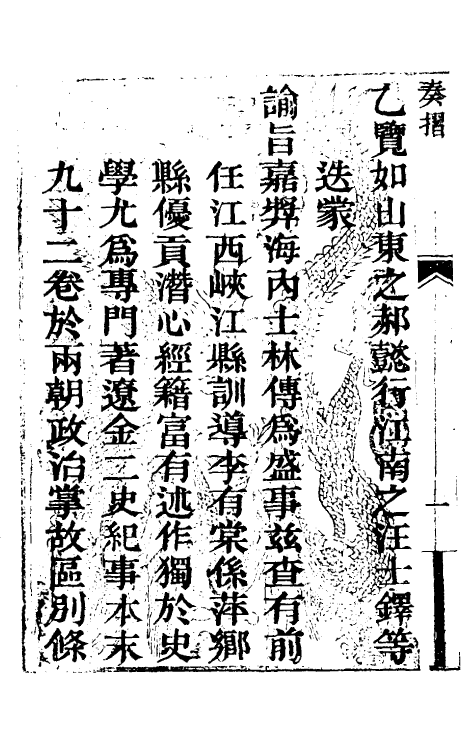 奏摺
一
乙覽如山東之郝懿行江南之汪士鐸等
迭蒙
諭旨嘉奬海內士林傳為盛事兹查有前
任江西峽江縣訓導李有棠係萍鄉
縣優貢潛心經籍富有述作獨於史
學尤為專門著遼金二史紀事本末
九十二卷於兩朝政治掌故區別條